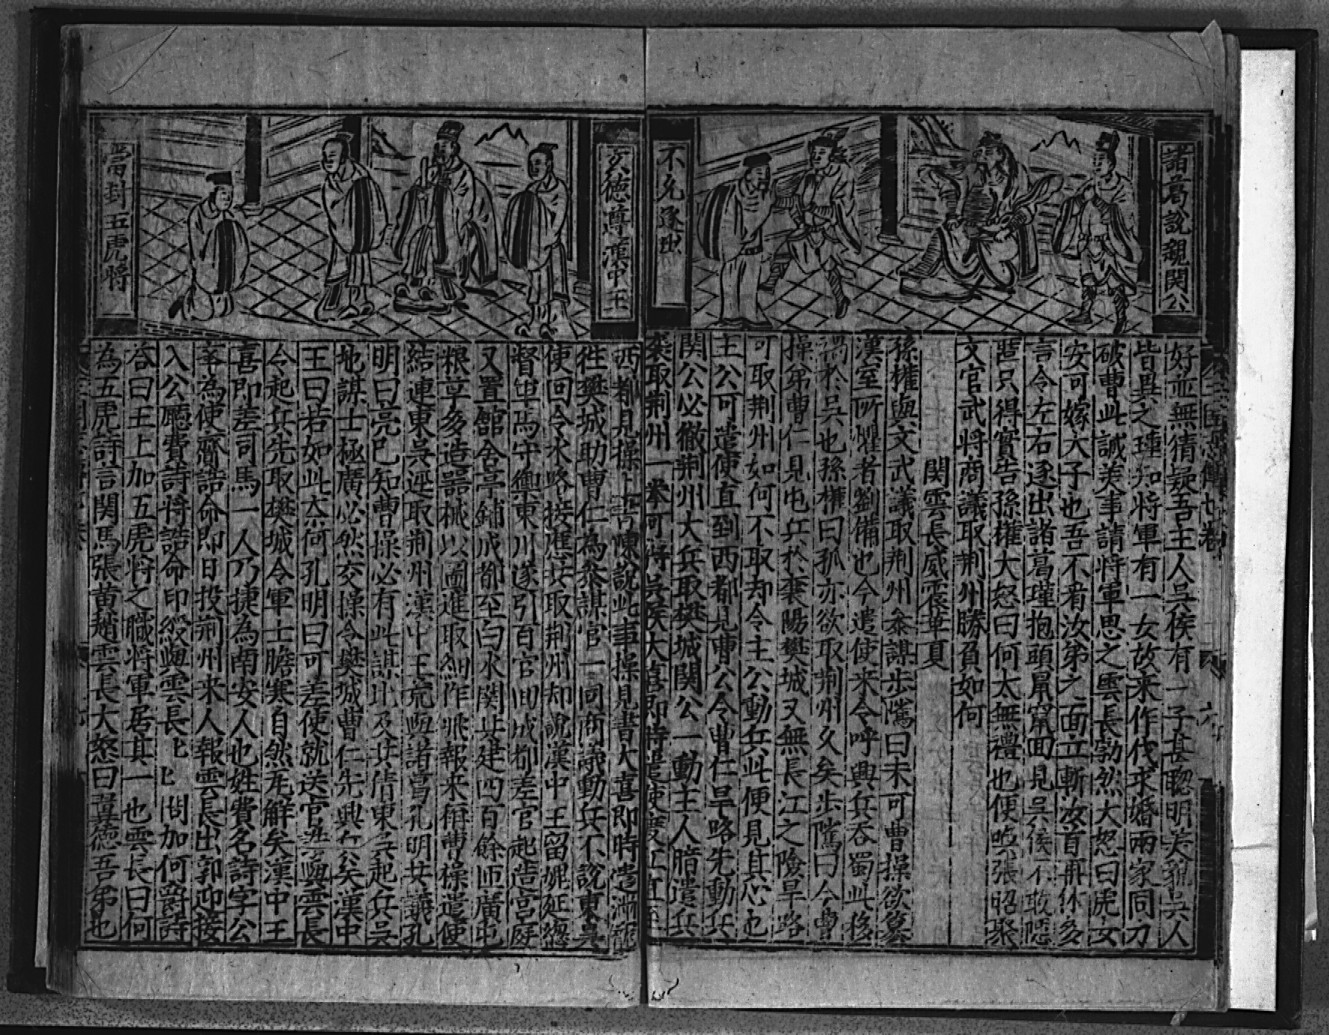 諸葛說親関公
不允逐出
好並無猜疑吾主人吳侯有一子甚聰明美貌吳人
皆異之瑾知將軍有一女故來作伐求婚兩家同力
破曹此誠美事請將軍思之雲長勃然大怒曰虎女
安可嫁犬子也吾不看汝弟之面立斬汝首再休多
言令左右逐出諸葛瑾抱頭鼠竄面見吳侯不敢隱
匿只得實告孫權大怒曰何太無禮也便喚張昭聚
文官武將商議取荆州勝負如何
関雲長威震華夏
孫權與文武議取荆州參謀步隲曰未可曹操欲篡
漢室所懼者劉備也今遣使來令呼興兵吞蜀此移
禍於吳也孫權曰孤亦欲取荆州久矣步隲曰今曹
操弟曹仁見屯兵於襄陽樊城又無長江之險旱路
可取荆州如何不取却令主公動兵此便見其心也
主公可遣使直到西都見曹公令曹仁旱路先動兵
関公必徹荆州大兵取樊城関公一動主人暗遣兵
襲取荆州一舉可得吳侯大喜即時遣使
玄德尊漢中王
當封五虎將
西都見操上書陳說此事操見書大喜即時遣滿寵
徃樊城助曹仁為參謀官一同商議動兵不說東吳
使回令水路接應共取荆州却說漢中王留魏延總
督軍馬守禦東川遂引百官回成都差官起造宮庭
又置館舍亭鋪成都至白水関共建四百餘𠩄廣屯
粮草多造噐械以圖進取細作飛報来稱曹操遣使
結連東吳迎取荆州漢中王荒與諸葛孔明共議孔
明曰亮已知曹操必有此謀以及共倩東吳起兵吳
地謀士極廣必然交操令樊城曹仁先興兵矣漢中
王曰若如此奈何孔明曰可差使就送官誥與雲長
令起兵先取樊城令軍士膽寒自然瓦解矣漢中王
喜即差司馬一人乃捷為南安人也姓費名詩字公
舉為使齎誥命即日投荆州来人報雲長出郭迎接
入公廳費詩將誥命印綬與雲長長問加何爵詩
荅曰王上加五虎將之職將軍居其一也雲長曰何
為五虎詩言関馬張黃趙雲長大怒曰翼德吾弟也